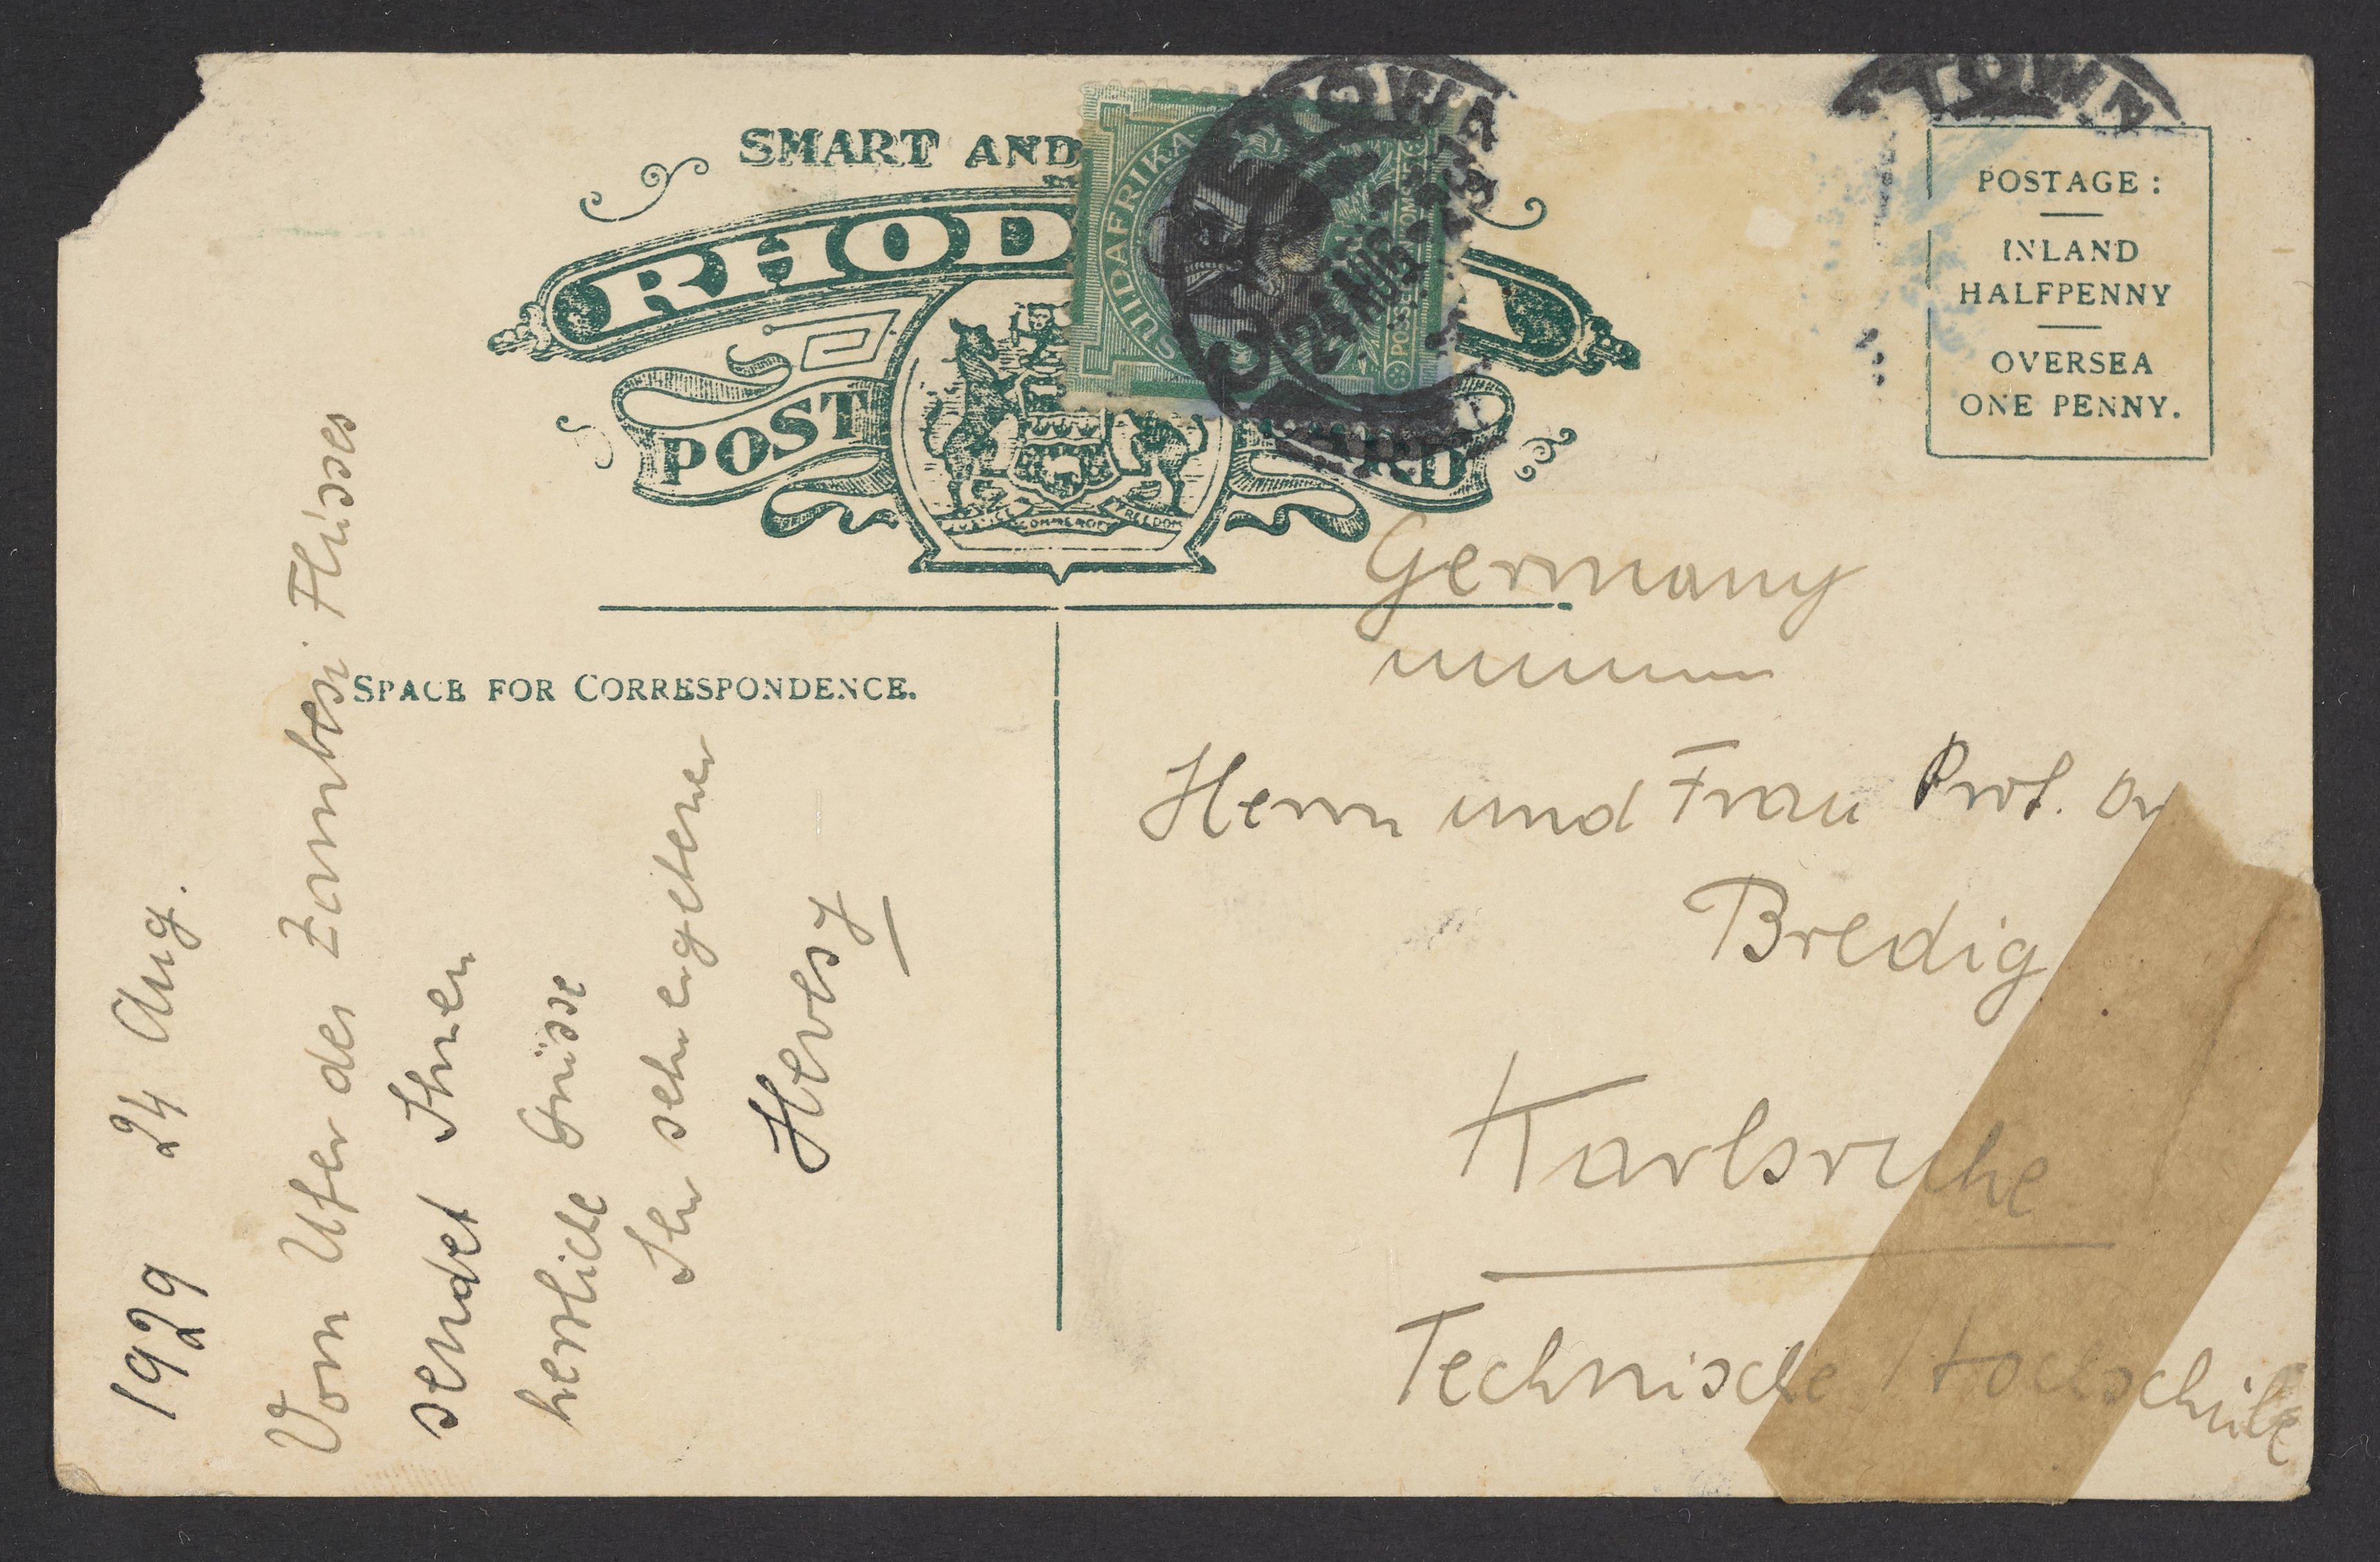 SMART AND
RHOD
POST
RD
JUSTICE COMMERCE FREEDOM
SUIDAFRIKA
24 AUG
TOWN
POSTAGE:
INLAND
HALFPENNY
OVERSEA
ONE PENNY.
SPACE FOR CORRESPONDENCE.
1929 24 Aug.
Vom Ufer des Zambesi Flusses
sendet Ihnen
herzliche Grüsse
Ihr sehr ergebener
Hevesy
Germany
Herrn und Frau Prof. Dr
Bredig
Karlsruhe
Technische Hochschule